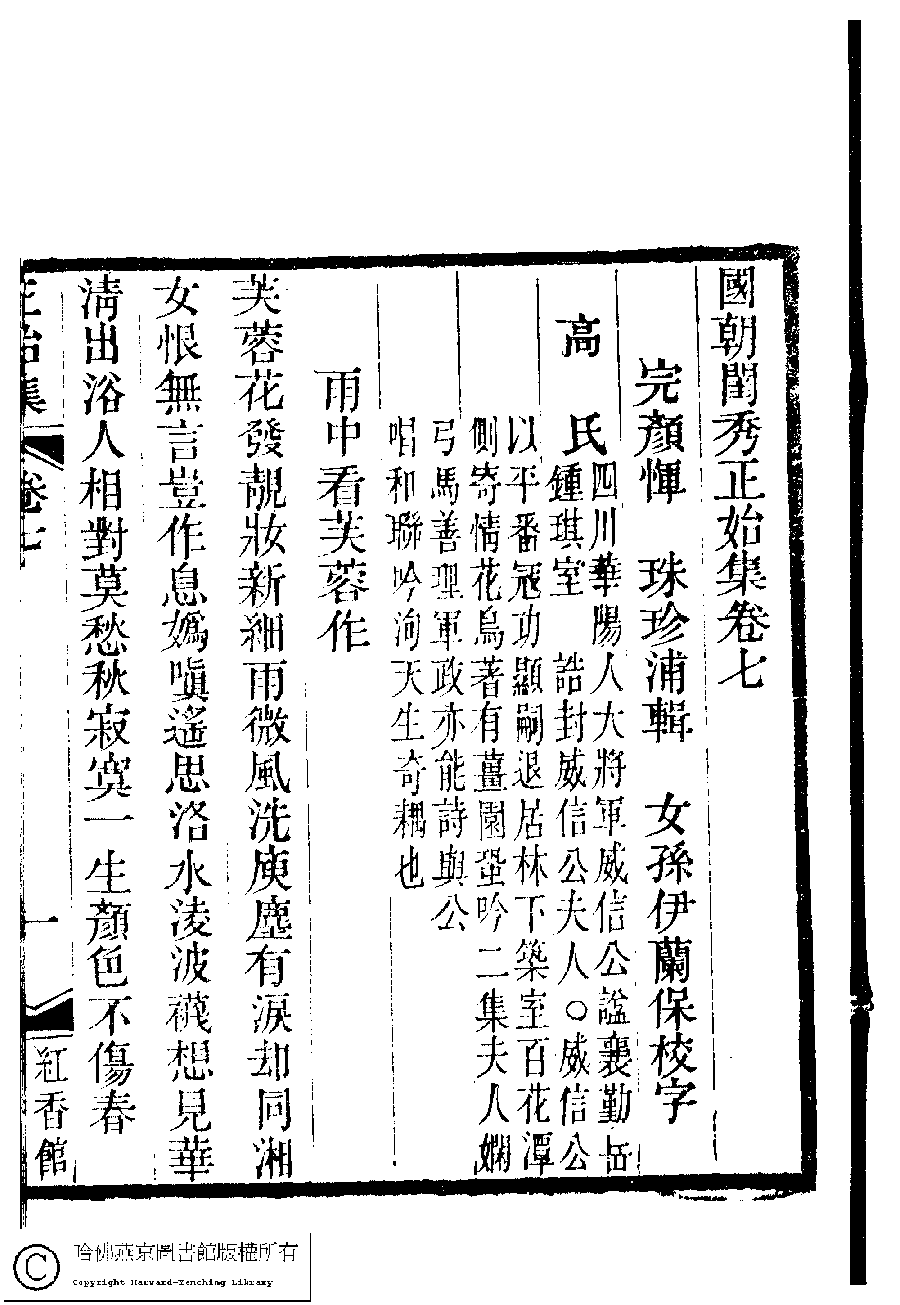 國朝閨秀正始集卷七
完顏惲 珠珍浦輯 女孫伊蘭保校字
高 氏 四川華陽人大將軍威信公諡襄勤岳
鍾琪室 誥封威信公夫人○威信公
以平番冦功顯嗣退居林下築室百花潭
側寄情花鳥著有薑園蛩吟二集夫人嫻
弓馬善理軍政亦能詩與公
唱和聯吟洵天生奇耦也
雨中看芙蓉作
芙蓉花發靚妝新細雨微風洗庾塵有淚却同湘
女恨無言豈作息媯嗔遙思洛水淩波襪想見華
淸出浴人相對莫愁秋寂寞一生顏色不傷春
正始集 卷七 一 紅香館
哈佛燕京圖書館版權所有
Copyright Harvard-Yenching Library